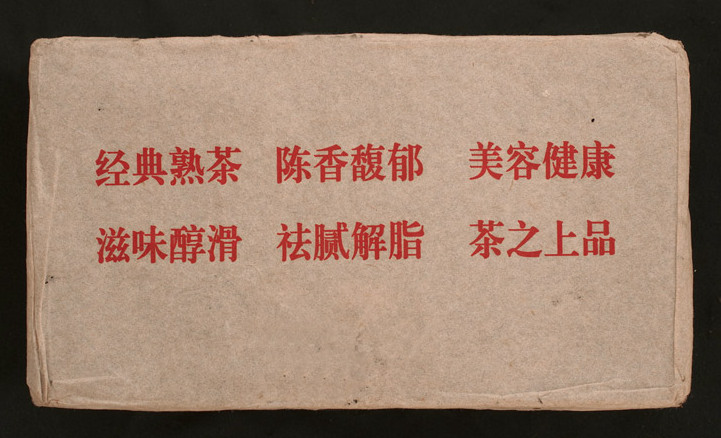 经典熟茶 陈香馥郁 美容健康
滋味醇滑 祛腻解脂 茶之上品